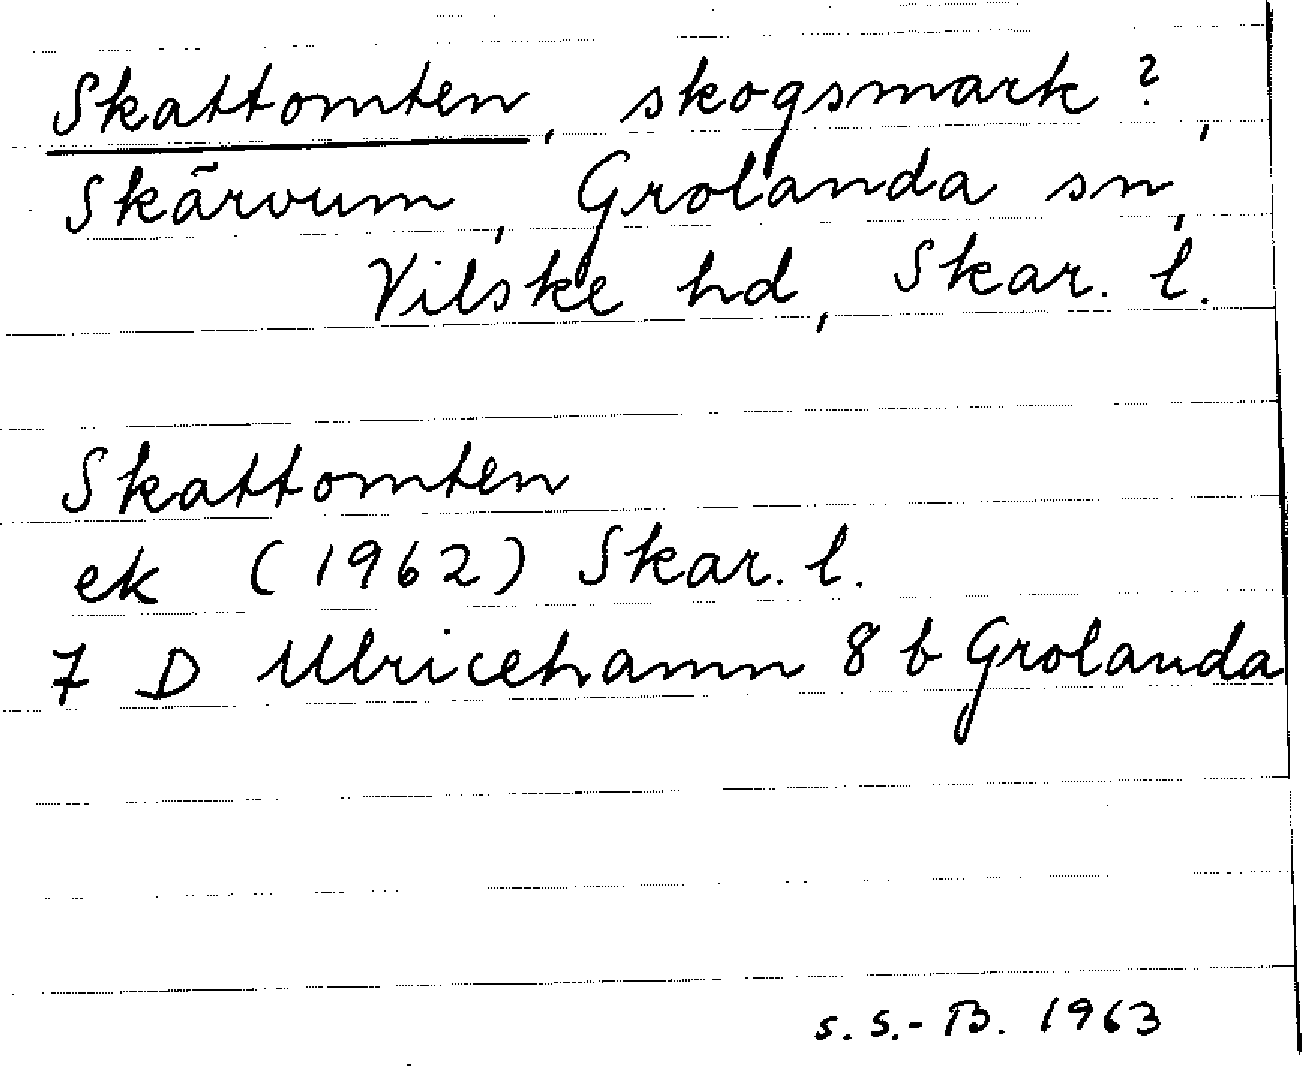 Skattomten, skogsmark?,
Skärvum, Grolanda sn,
Vilske hd, Skar. l.
Skattomten
ek (1962) Skar. l.
7 D Ulricehamn 8 b Grolanda
S. S.-B. 1963